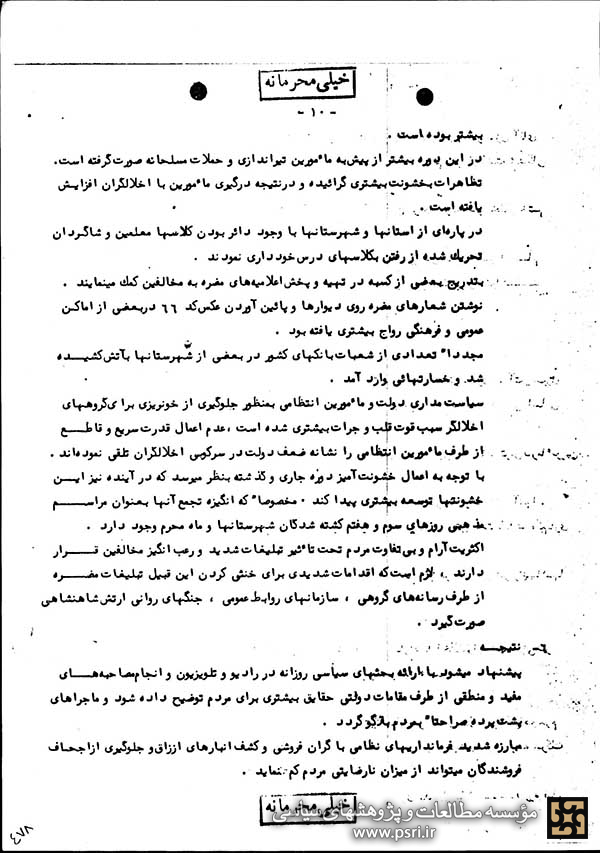 خیلی محرمانه
- ۱۰ -
بیشتر بوده است .
در این دوره بیشتر از پیش به مأمورین تیراندازی و حملات مسلحانه صورت گرفته است .
تظاهرات بخشونت بیشتری گرائیده و در نتیجه درگیری مأمورین با اخلالگران افزایش
یافته است .
در پاره‌ای از استانها و شهرستانها با وجود دائر بودن کلاسها معلمین و شاگردان
تحریک شده از رفتن بکلاسهای درس خود داری نمودند .
بتدریج بعضی از کسبه در تهیه و پخش اعلامیه‌های مضره به مخالفین کمک مینمایند .
نوشتن شعارهای مضره روی دیوارها و پائین آوردن عکس کد ۶۶ در بعضی از اماکن
عمومی و فرهنگی رواج بیشتری یافته بود .
مجدداً تعدادی از شعبات بانکهای کشور در بعضی از شهرستانها بآتش کشیده
شد و خسارتهائی وارد آمد .
سیاست مداری دولت و مأمورین انتظامی بمنظور جلوگیری از خونریزی برای گروههای
اخلالگر سبب قوت قلب و جرات بیشتری شده است ، عدم اعمال قدرت سریع و قاطع
از طرف مأمورین انتظامی را نشانه ضعف دولت در سرکوبی اخلالگران تلقی نموده‌اند .
با توجه به اعمال خشونت آمیز دوره جاری و گذشته بنظر میرسد که در آینده نیز این
خشونتها توسعه بیشتری پیدا کند . مخصوصاً که انگیزه تجمع آنها بعنوان مراسم
مذهبی روزهای سوم و هفتم کشته شدگان شهرستانها و ماه محرم وجود دارد .
اکثریت آرام و بی تفاوت مردم تحت تاثیر تبلیغات شدید و رعب انگیز مخالفین قرار
دارند ، لازم است که اقدامات شدیدی برای خنثی کردن این قبیل تبلیغات مضره
از طرف رسانه‌های گروهی ، سازمانهای روابط عمومی ، جنگهای روانی ارتش شاهنشاهی
صورت گیرد .
نتیجه
پیشنهاد میشود با ارائه بحثهای سیاسی روزانه در رادیو و تلویزیون و انجام مصاحبه‌های
مفید و منطقی از طرف مقامات دولتی حقایق بیشتری برای مردم توضیح داده شود و ماجراهای
پشت پرده صراحتاً بمردم بازگو گردد .
مبارزه شدید فرمانداریهای نظامی با گران فروشی و کشف انبارهای ارزاق و جلوگیری از اجحاف
فروشندگان میتواند از میزان نارضایتی مردم کم نماید .
خیلی محرمانه
مؤسسه مطالعات و پژوهشهای سیاسی
www.psri.ir
۴۷۸